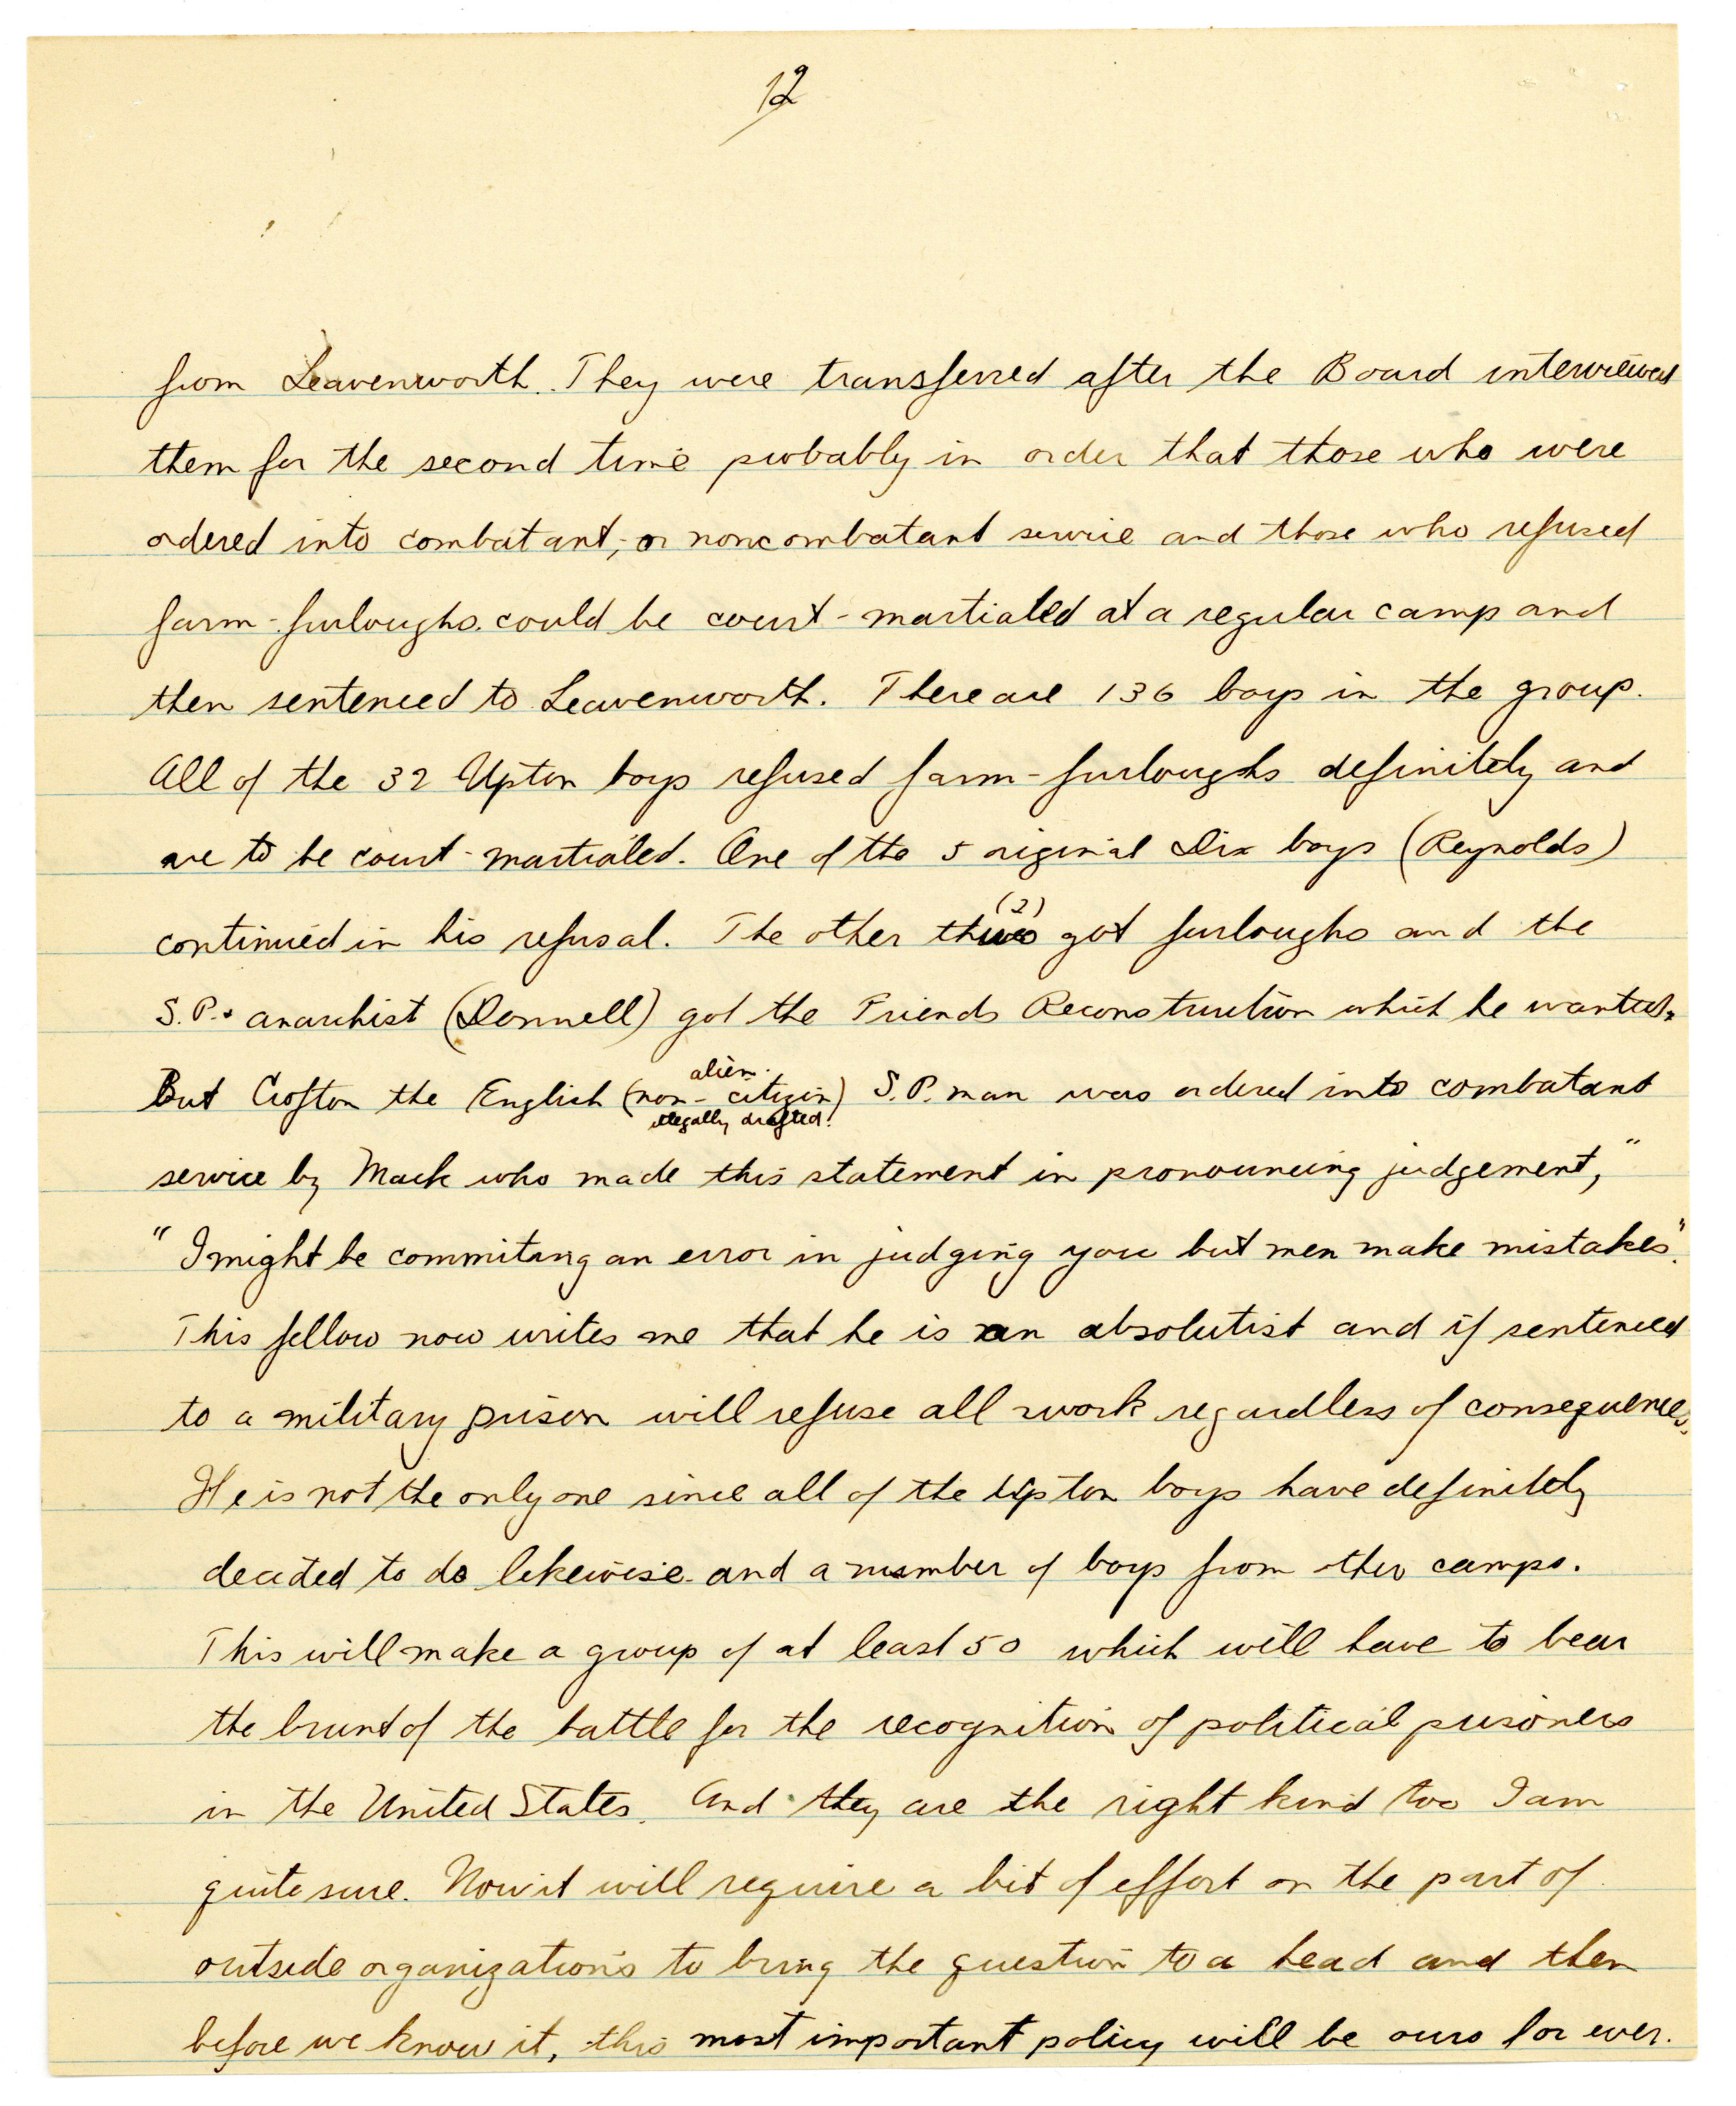 12
from Leavenworth. They were transferred after the Board interviewed
them for the second time probably in order that those who were
ordered into combatant, or noncombatant service and those who refused
farm-furloughs could be court-martialed at a regular camp and
then sentenced to Leavenworth. There are 136 boys in the group.
All of the 32 Upton boys refused farm-furloughs definitely and
are to be court-martialed. One of the 5 original Dix boys (Reynolds)
(2)
continued in his refusal. The other got furloughs and the
S.P. & anarchist (Dennell) got the Friends Reconstruction which he wanted.
alien.
But Crofton the English (non-citizen) S.P. man was ordered into combatant
illegally drafted!
service by Mack who made this statement in pronouncing judgement,"
"I might be commiting an error in judging you but men make mistakes".
This fellow now writes me that he is an absolutist and if sentenced
to a military prison will refuse all work regardless of consequences.
He is not the only one since all of the Upton boys have definitely
decided to do likewise and a number of boys from other camps.
This will make a group of at least 50 which will have to bear
the brunt of the battle for the recognition of political prisoners
in the United States. And they are the right kind too I am
quite sure. Now it will require a bit of effort on the part of
outside organizations to bring the question to a head and then
before we know it, this most important policy will be ours for ever.